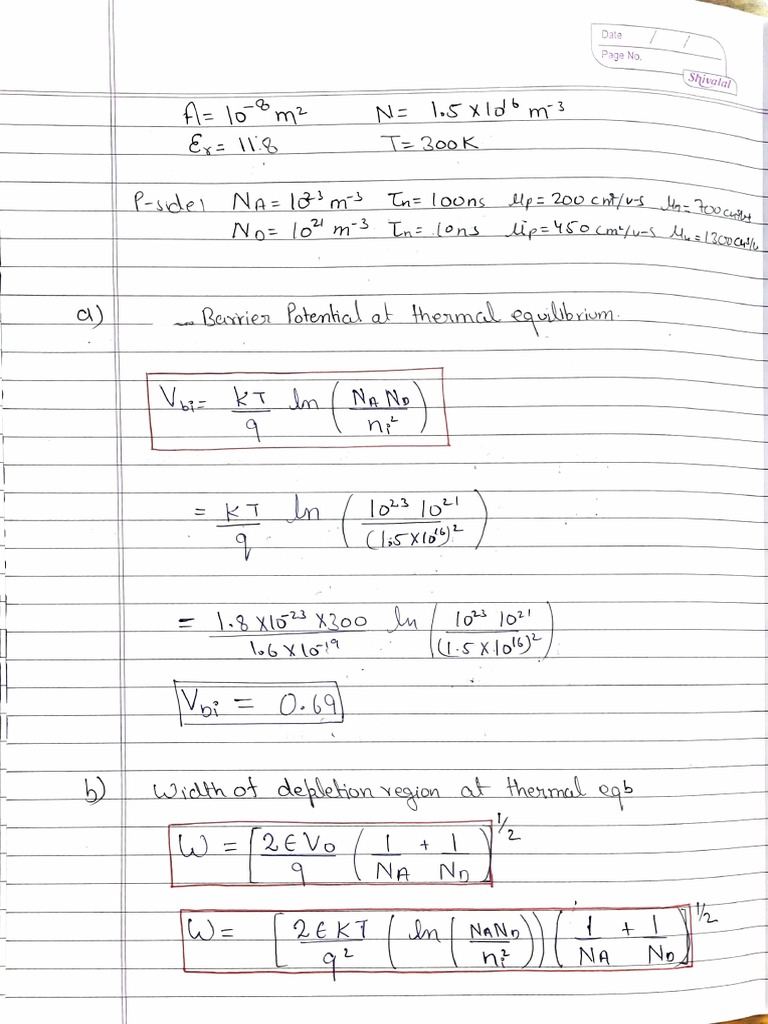 Date / /
Page No.
Shivalal
A = 10⁻⁸ m² N = 1.5 × 10¹⁶ m⁻³
Ɛr = 11.8 T = 300K
P-side; NA = 10²³ m⁻³ τn = 100ns μp = 200 cm²/v-s μn = 700 cm²/v-s
ND = 10²¹ m⁻³ τn = 10ns μp = 450 cm²/v-s μn = 1300 cm²/v
a) Barrier Potential at thermal equilibrium.
Vbi = KT/q ln (NA ND / ni²)
= KT/q ln (10²³ 10²¹ / (1.5 × 10¹⁶)²)
= 1.8 × 10⁻²³ × 300 / 1.6 × 10⁻¹⁹ ln (10²³ 10²¹ / (1.5 × 10¹⁶)²)
Vbi = 0.69
b) Width of depletion region at thermal eqb
W = [2 ϵ V0 / q (1/NA + 1/ND)]^1/2
W = [2 ϵ KT / q² (ln (NAND / ni²)) (1/NA + 1/ND)]^1/2